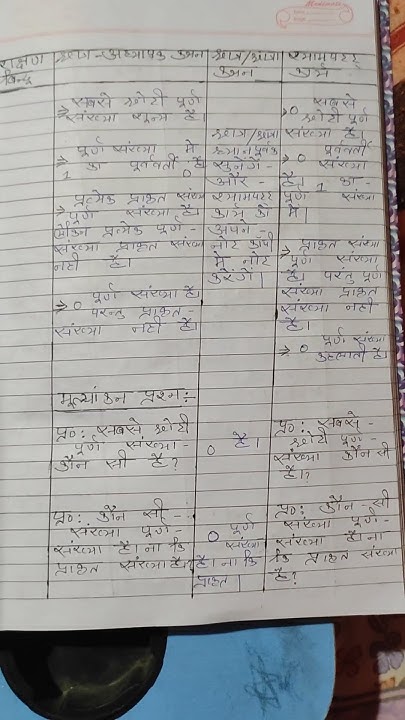 शिक्षण बिन्दु
छात्र-अध्यापक कथन
छात्र/छात्रा कथन
श्यामपट्ट कार्य
⇒ सबसे छोटी पूर्ण
संख्या शून्य है।
⇒ पूर्ण संख्या में
1 का पूर्ववर्ती 0 है
⇒ प्रत्येक प्राकृत संख्या
पूर्ण संख्या है।
लेकिन प्रत्येक पूर्ण-
संख्या प्राकृत संख्या
नहीं है।
⇒ 0 पूर्ण संख्या है
परन्तु प्राकृत-
संख्या नहीं है।
छात्र/छात्रा
ध्यान पूर्वक
सुनेंगे-
और-
श्यामपट्ट
कार्य को
अपने-
नोट कॉपी
में नोट
करेंगे।
⇒ 0 सबसे
छोटी पूर्ण
संख्या है।
⇒ 0 पूर्ववर्ती
संख्या
है। 1 का-
पूर्ण संख्या
में।
⇒ प्राकृत संख्या
पूर्ण संख्या
है। परंतु पूर्ण
संख्या प्राकृत
संख्या नहीं
है।
⇒ 0 पूर्ण संख्या
कहलाती है।
मूल्यांकन प्रश्न:-
प्र०: सबसे छोटी
पूर्ण संख्या-
कौन सी है?
0 है।
प्र०: सबसे-
छोटी पूर्ण-
संख्या कौन सी
है।?
प्र०: कौन सी-
संख्या पूर्ण-
संख्या है। ना कि
प्राकृत संख्या है।
0 पूर्ण
संख्या
है। ना कि
प्राकृत।
प्र०: कौन-सी
संख्या पूर्ण-
संख्या है। ना
कि प्राकृत संख्या
है?